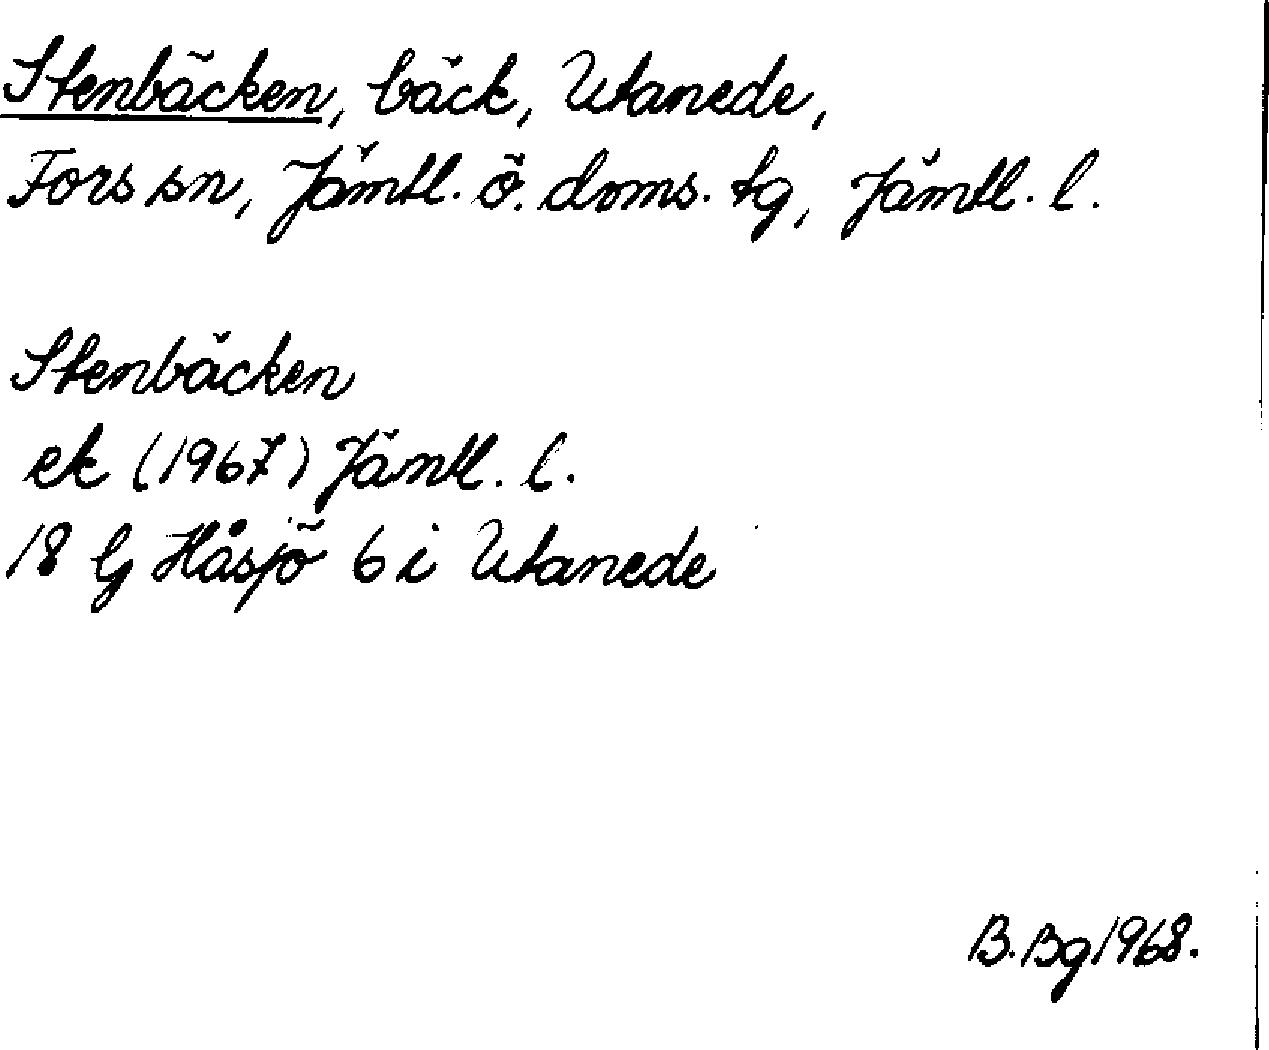 Stenbäcken, bäck, Utanede,
Fors sn, Jämtl. ö. doms. tg, Jämtl. l.
Stenbäcken
ek (1967) Jämtl. l.
18 G Håsjö 6 i Utanede
B. Bg 1968.